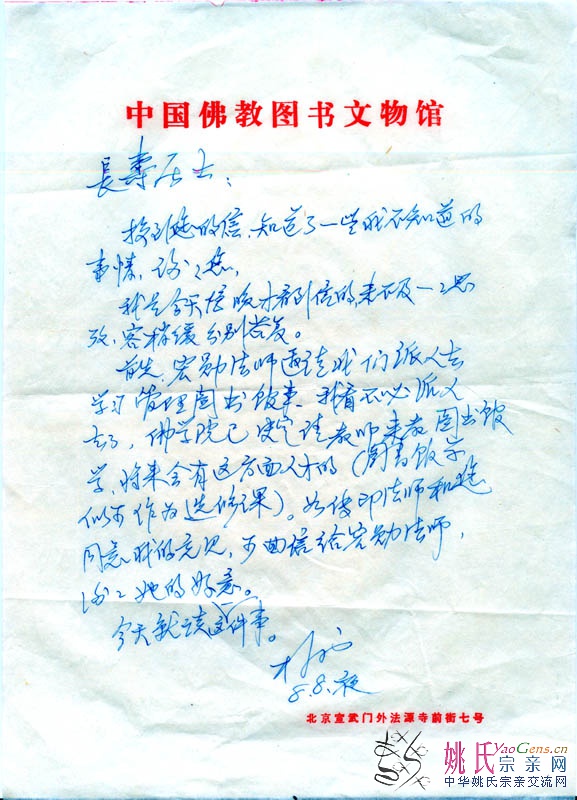 中国佛教图书文物馆
長寿居士：
接到您的信，知道了一些我不知道的
事情，谢谢您。
我是今天傍晚才看到信的，来不及一一思
考，容稍缓分别答复。
首先，宏勋法师邀请我们派人去
学习管理图书馆事，我看不必派人
去了，佛学院已决定请教师来教图书馆
学，将来会有这方面人才的（图书馆学
似可作为选修课）。如传印法师和您
同意我的意见，可由信给宏勋法师，
谢谢她的好意。
今天就谈这件事。
8.8.夜
北京宣武门外法源寺前街七号
姚氏YaoGens.cn
宗亲网
中华姚氏宗亲交流网